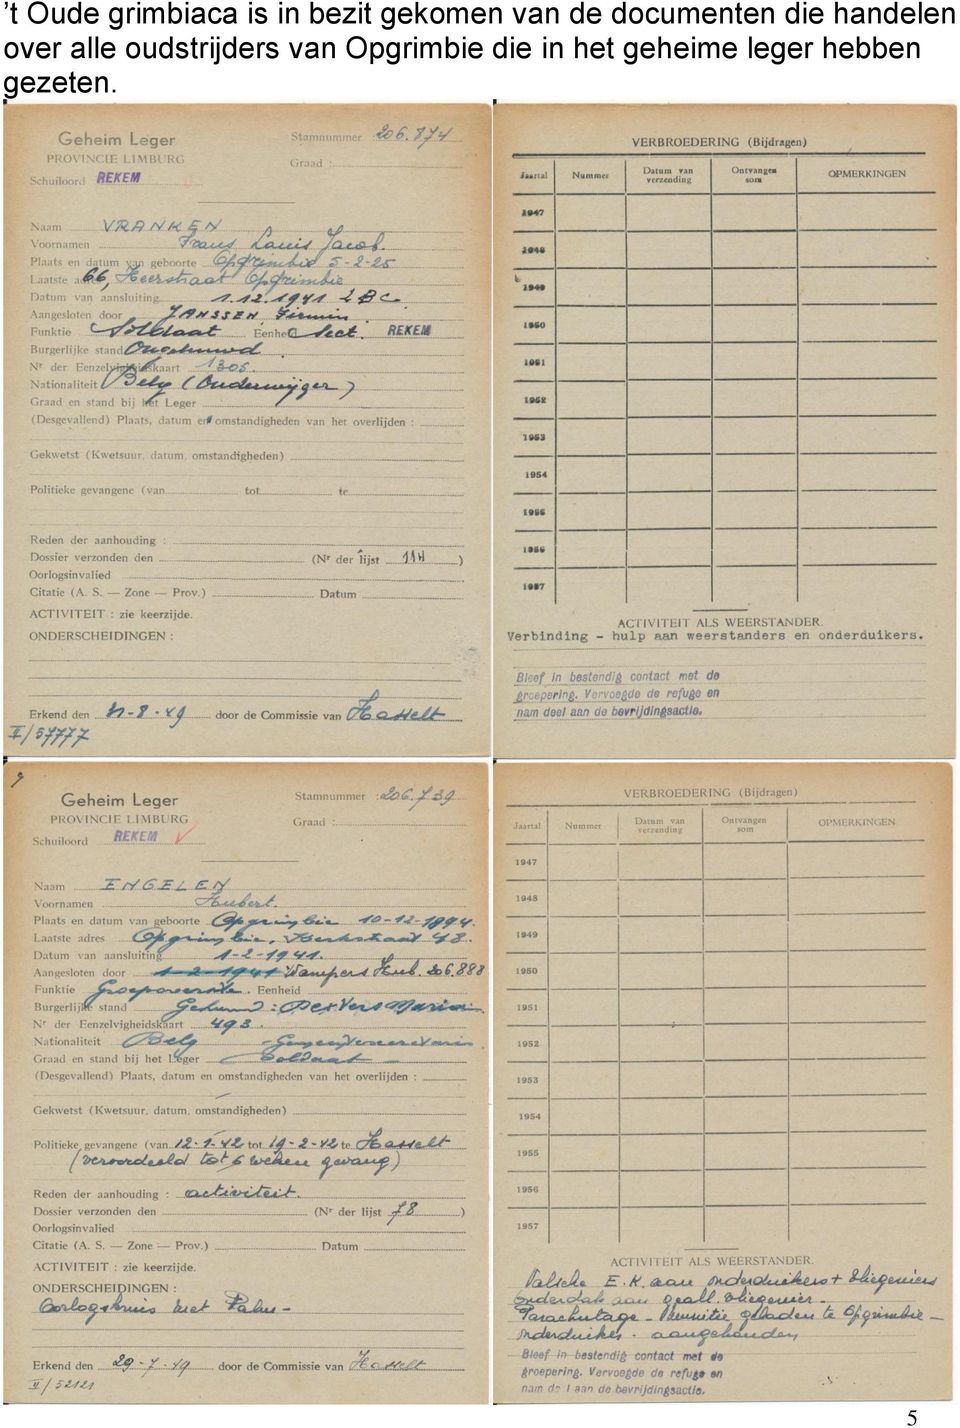 ’t Oude grimbiaca is in bezit gekomen van de documenten die handelen
over alle oudstrijders van Opgrimbie die in het geheime leger hebben
gezeten.
Geheim Leger
Stamnummer 206.874
PROVINCIE LIMBURG
Graad :
Schuiloord REKEM
Naam VRANKEN
Voornamen Frans Louis Jacob.
Plaats en datum van geboorte Opgrimbie 5-2-25
Laatste adres 66, Heerstraat Opgrimbie
Datum van aansluiting 1.12.1941
Aangesloten door JANSSEN, Firmin
Funktie Soldaat Eenheid Sect. REKEM
Burgerlijke stand Ongehuwd
Nr der Eenzelvigheidskaart 1305.
Nationaliteit Belg (Onderwijzer)
Graad en stand bij het Leger
(Desgevallend) Plaats, datum en omstandigheden van het overlijden :
Gekwetst (Kwetsuur, datum, omstandigheden)
Politieke gevangene (van tot te
Reden der aanhouding :
Dossier verzonden den (Nr der lijst 114 )
Oorlogsinvalied
Citatie (A. S. — Zone — Prov.) Datum
ACTIVITEIT : zie keerzijde.
ONDERSCHEIDINGEN :
Erkend den 31-8-49 door de Commissie van Hasselt
II/57777
VERBROEDERING (Bijdragen)
Jaartal Nummer Datum van verzending Ontvangen som OPMERKINGEN
1947
1948
1949
1950
1951
1952
1953
1954
1955
1956
1957
ACTIVITEIT ALS WEERSTANDER.
Verbinding - hulp aan weerstanders en onderduikers.
Bleef in bestendig contact met de
groepering. Vervoegde de refuge en
nam deel aan de bevrijdingsactie.
Geheim Leger
Stamnummer : 206.739
PROVINCIE LIMBURG
Graad :
Schuiloord REKEM
Naam ENGELEN
Voornamen Hubert.
Plaats en datum van geboorte Opgrimbie 10-12-1894.
Laatste adres Opgrimbie, Kerkstraat 48.
Datum van aansluiting 1-2-1941.
Aangesloten door 1-2-1941 Wampers Hub. 206.888
Funktie Groepoverste. Eenheid
Burgerlijke stand Gehuwd :
Nr der Eenzelvigheidskaart 493.
Nationaliteit Belg - Gemeentesecretaris
Graad en stand bij het Leger Soldaat -
(Desgevallend) Plaats, datum en omstandigheden van het overlijden :
Gekwetst (Kwetsuur, datum, omstandigheden)
Politieke gevangene (van 12-1-42 tot 19-2-42 te Hasselt
(veroordeeld tot 6 weken gevang)
Reden der aanhouding : activiteit.
Dossier verzonden den (Nr der lijst 78 )
Oorlogsinvalied
Citatie (A. S. — Zone — Prov.) Datum
ACTIVITEIT : zie keerzijde.
ONDERSCHEIDINGEN :
Oorlogskruis met Palm -
Erkend den 29-7-49 door de Commissie van Hasselt
II/52121
VERBROEDERING (Bijdragen)
Jaartal Nummer Datum van verzending Ontvangen som OPMERKINGEN
1947
1948
1949
1950
1951
1952
1953
1954
1955
1956
1957
ACTIVITEIT ALS WEERSTANDER.
Valsche E.K. aan onderduikers + vliegeniers
onderdak aan geall. vliegenier -
Parachutage - Munitie geladen te Opgrimbie -
onderduikes - aangehouden
Bleef in bestendig contact met de
groepering. Vervoegde de refuge en
nam de l aan de bevrijdingsactie.
5